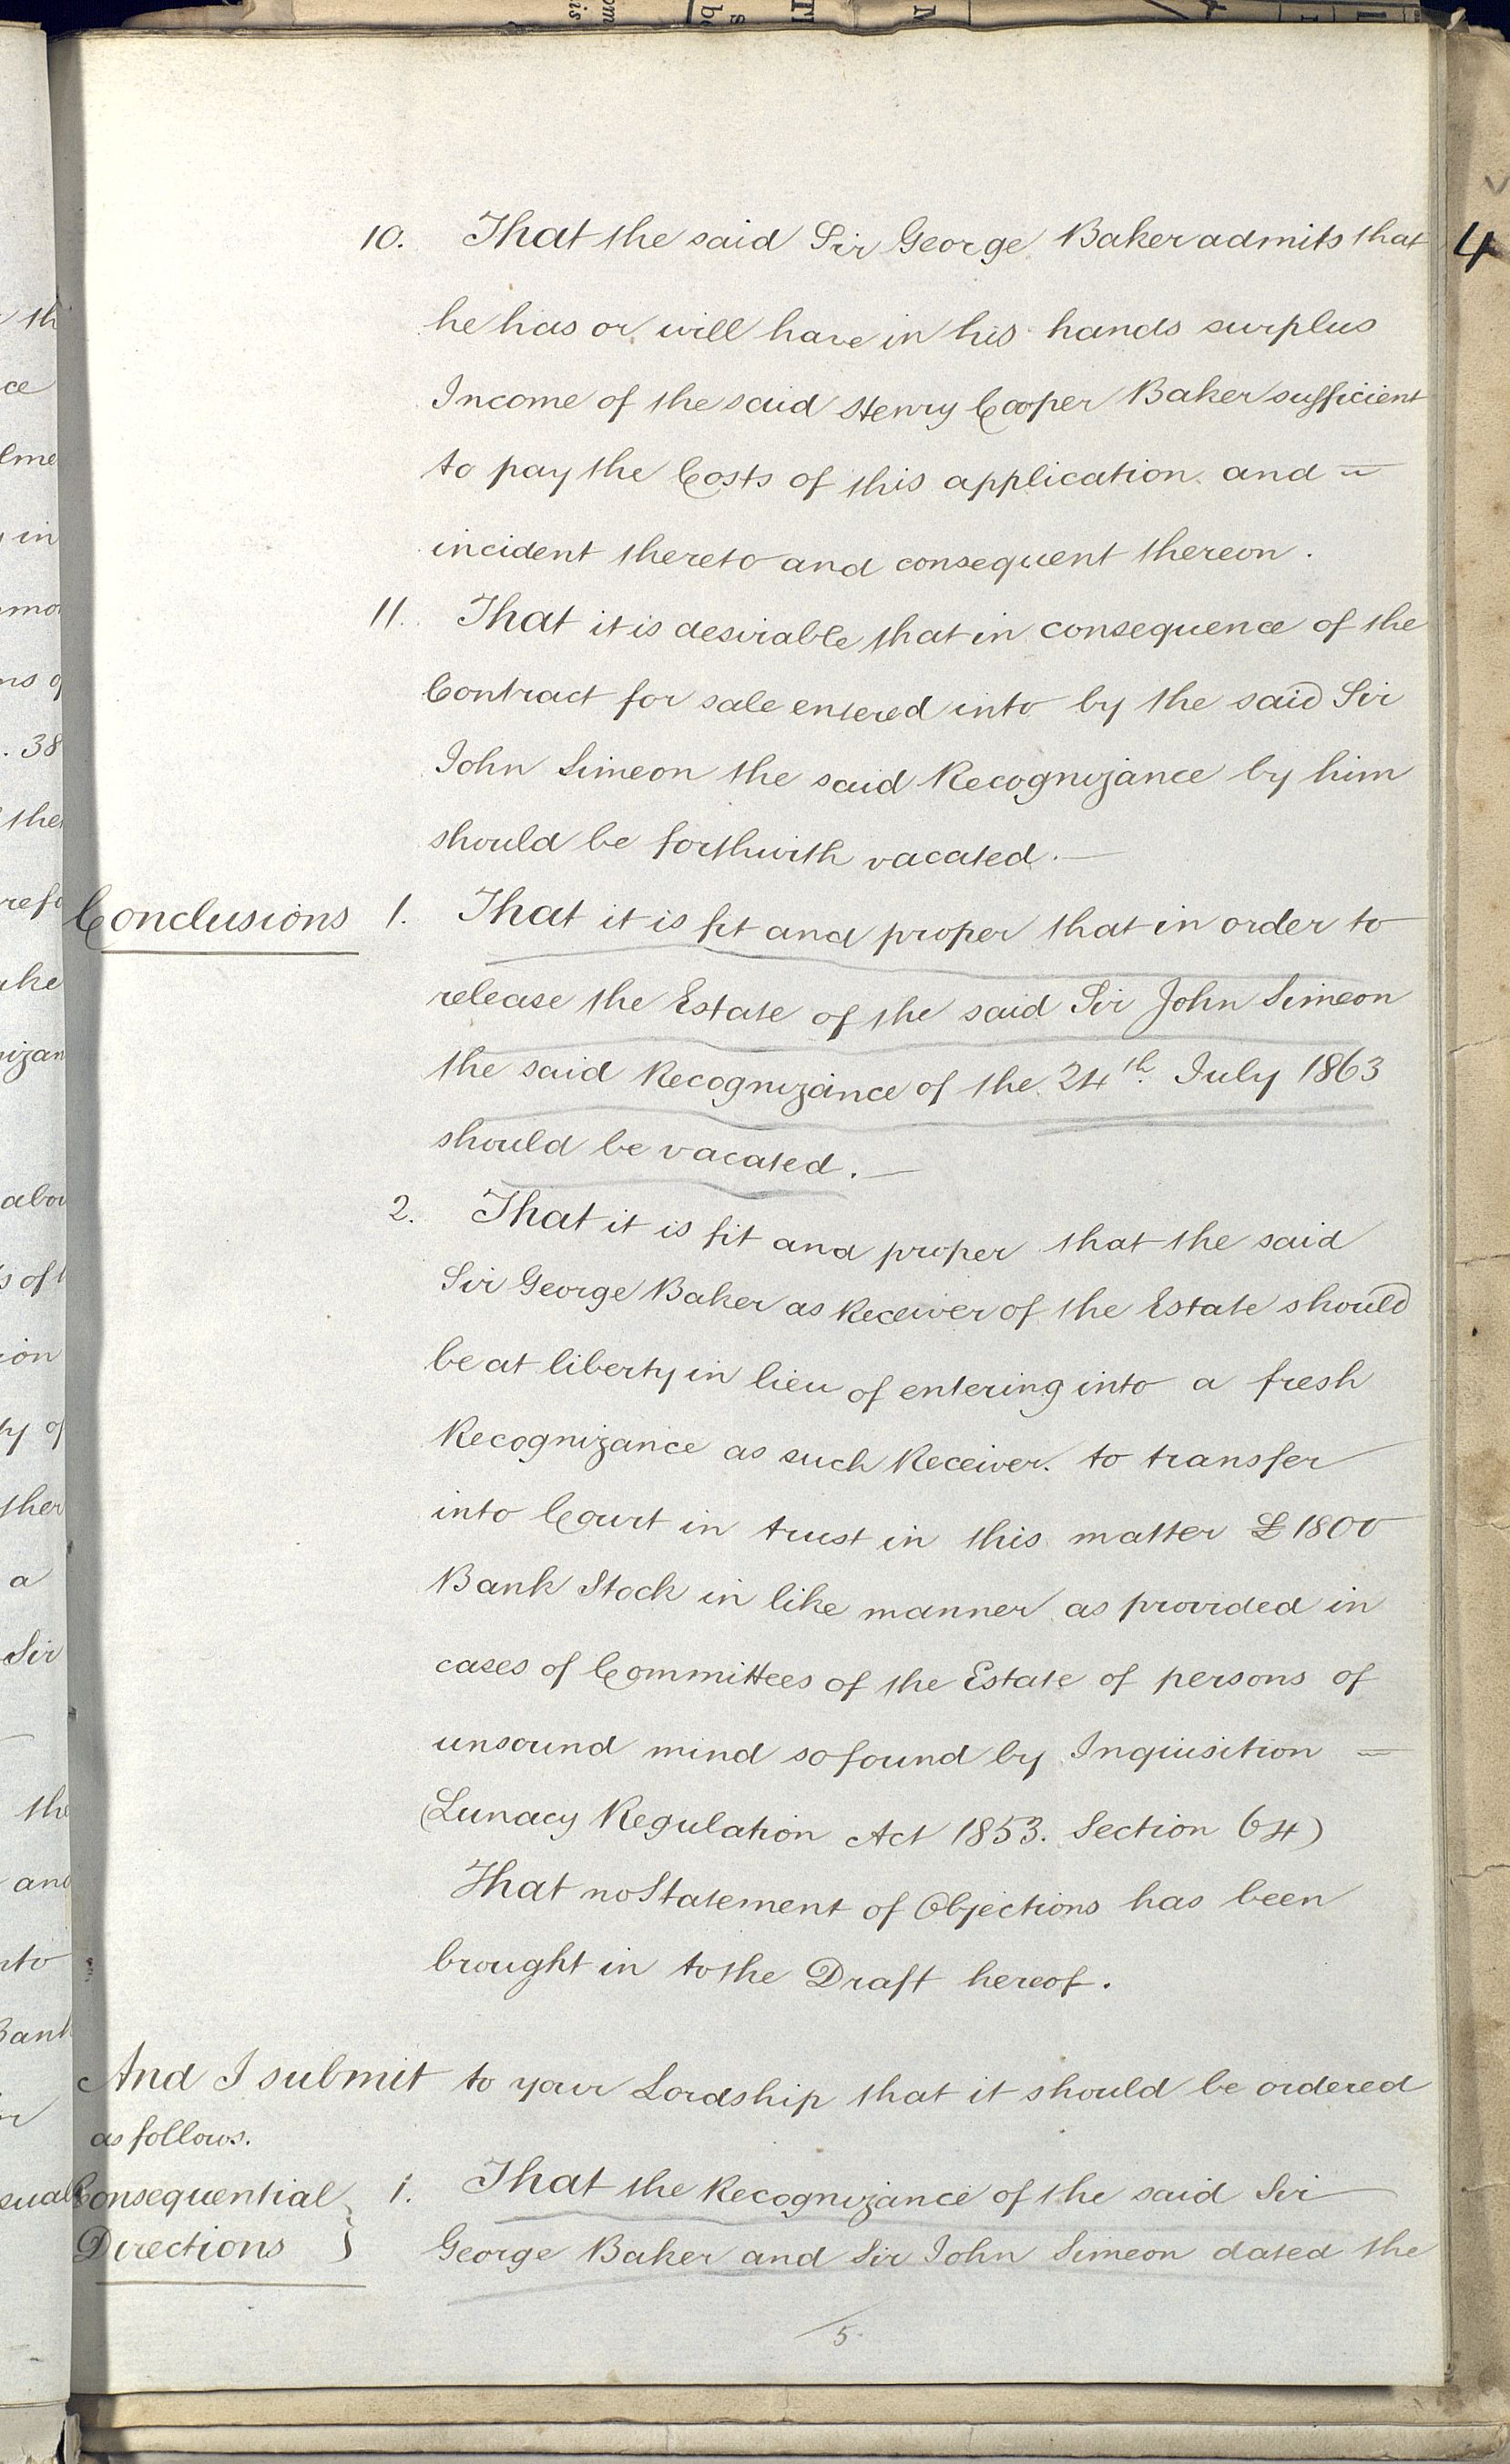 10. That the said Sir George Baker admits that
4
he has or will have in his hands surplus
Income of the said Henry Cooper Baker sufficient
to pay the Costs of this application and =
incident thereto and consequent thereon.
11. That it is desirable that in consequence of the
Contract for sale entered into by the said Sir
John Simeon the said Recognizance by him
should be forthwith vacated. —
Conclusions 1. That it is fit and proper that in order to
release the Estate of the said Sir John Simeon
the said Recognizance of the 24th. July 1863
should be vacated. —
2. That it is fit and proper that the said
Sir George Baker as Receiver of the Estate should
be at liberty in lieu of entering into a fresh
Recognizance as such Receiver. to transfer
into Court in trust in this matter £1800
Bank Stock in like manner as provided in
cases of Committees of the Estate of persons of
unsound mind so found by Inquisition =
(Lunacy Regulation Act 1853. Section 64)
That no Statement of Objections has been
brought in to the Draft hereof.
And I submit to your Lordship that it should be ordered
as follows.
Consequential 1. That the Recognizance of the said Sir
Directions } George Baker and Sir John Simeon dated the
5